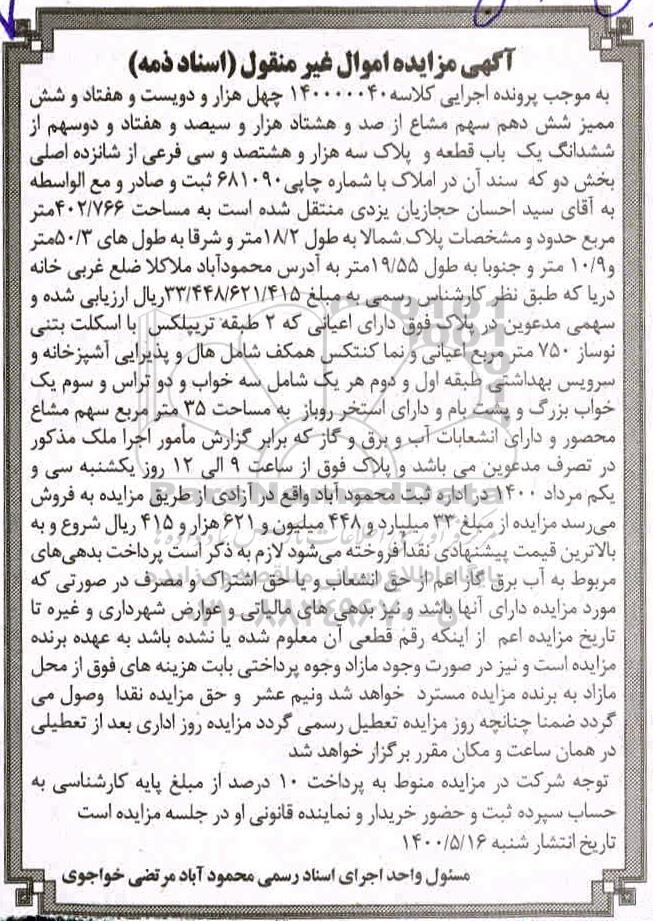 آگهی مزایده اموال غیر منقول (اسناد ذمه)
به موجب پرونده اجرایی کلاسه ۱۴۰۰۰۰۰۴۰ چهل هزار و دویست و هفتاد و شش
ممیز شش دهم سهم مشاع از صد و هشتاد هزار و سیصد و هفتاد و دوسهم از
ششدانگ یک باب قطعه و پلاک سه هزار و هشتصد و سی فرعی از شانزده اصلی
بخش دو که سند آن در املاک با شماره چاپی ۶۸۱۰۹۰ ثبت و صادر و مع الواسطه
به آقای سید احسان حجازیان یزدی منتقل شده است به مساحت ۴۰۲/۷۶۶متر
مربع حدود و مشخصات پلاک شمالا به طول ۱۸/۲متر و شرقا به طول های ۵۰/۳متر
و۱۰/۹ متر و جنوبا به طول ۱۹/۵۵متر به آدرس محمودآباد ملاکلا ضلع غربی خانه
دریا که طبق نظر کارشناس رسمی به مبلغ ۳۳/۴۴۸/۶۲۱/۴۱۵ریال ارزیابی شده و
سهمی مدعوین در پلاک فوق دارای اعیانی که ۲ طبقه تریپلکس با اسکلت بتنی
نوساز ۷۵۰ متر مربع اعیانی و نما کنتکس همکف شامل هال و پذیرایی آشپزخانه و
سرویس بهداشتی طبقه اول و دوم هر یک شامل سه خواب و دو تراس و سوم یک
خواب بزرگ و پشت بام و دارای استخر روباز به مساحت ۳۵ متر مربع سهم مشاع
محصور و دارای انشعابات آب و برق و گاز که برابر گزارش مأمور اجرا ملک مذکور
در تصرف مدعوین می باشد و پلاک فوق از ساعت ۹ الی ۱۲ روز یکشنبه سی و
یکم مرداد ۱۴۰۰ در اداره ثبت محمودآباد واقع در آزادی از طریق مزایده به فروش
می‌رسد مزایده از مبلغ ۳۳ میلیارد و ۴۴۸ میلیون و ۶۲۱ هزار و ۴۱۵ ریال شروع و به
بالاترین قیمت پیشنهادی نقدا فروخته می‌شود لازم به ذکر است پرداخت بدهی‌های
مربوط به آب برق گاز اعم از حق انشعاب و یا حق اشتراک و مصرف در صورتی که
مورد مزایده دارای آنها باشد و نیز بدهی های مالیاتی و عوارض شهرداری و غیره تا
تاریخ مزایده اعم از اینکه رقم قطعی آن معلوم شده یا نشده باشد به عهده برنده
مزایده است و نیز در صورت وجود مازاد وجوه پرداختی بابت هزینه های فوق از محل
مازاد به برنده مزایده مسترد خواهد شد ونیم عشر و حق مزایده نقدا وصول می
گردد ضمنا چنانچه روز مزایده تعطیل رسمی گردد مزایده روز اداری بعد از تعطیلی
در همان ساعت و مکان مقرر برگزار خواهد شد
توجه شرکت در مزایده منوط به پرداخت ۱۰ درصد از مبلغ پایه کارشناسی به
حساب سپرده ثبت و حضور خریدار و نماینده قانونی او در جلسه مزایده است
تاریخ انتشار شنبه ۱۴۰۰/۵/۱۶
مسئول واحد اجرای اسناد رسمی محمود آباد مرتضی خواجوی